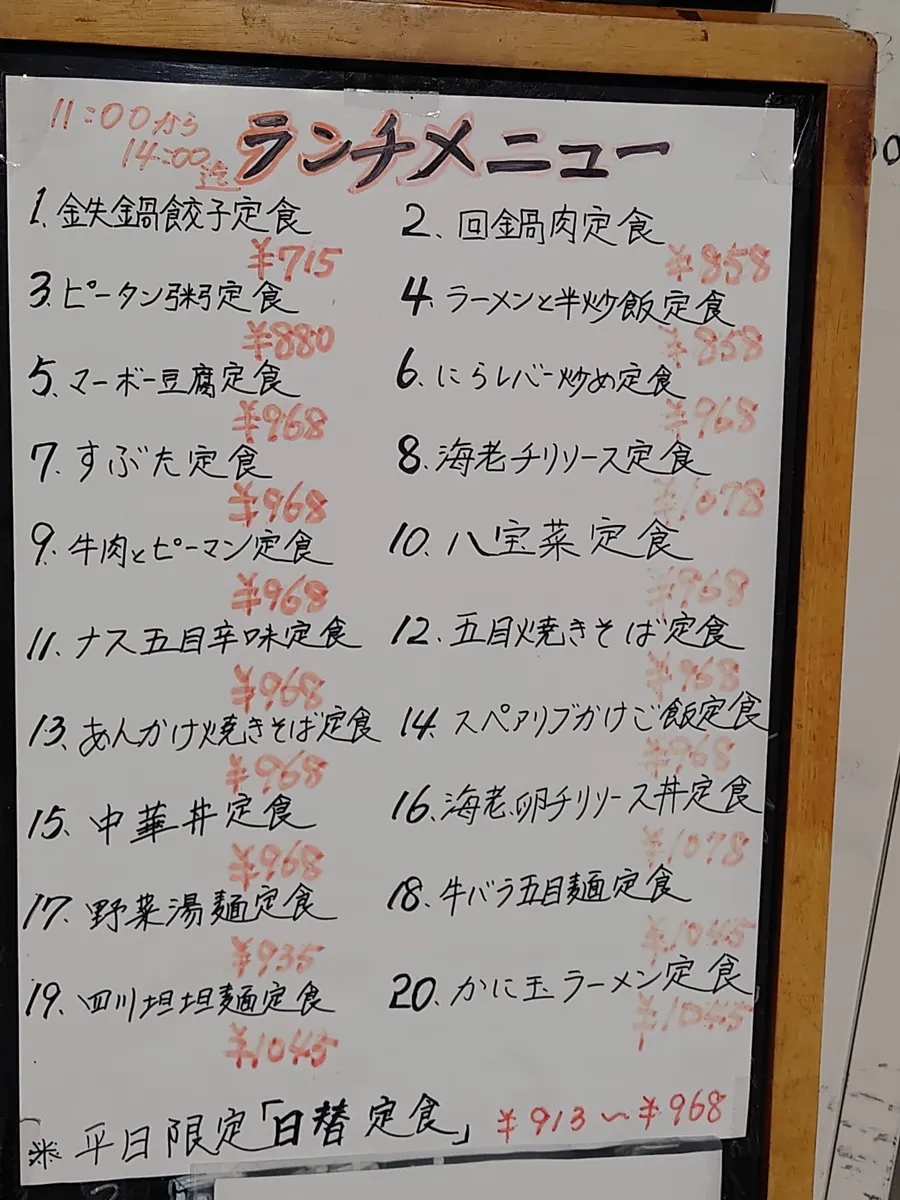 11:00から
14:00迄
ランチメニュー
1. 鉄鍋餃子定食
¥715
2. 回鍋肉定食
¥858
3. ピータン粥定食
¥880
4. ラーメンと半炒飯定食
¥858
5. マーボー豆腐定食
¥968
6. にらレバー炒め定食
¥968
7. すぶた定食
¥968
8. 海老チリソース定食
¥1078
9. 牛肉とピーマン定食
¥968
10. 八宝菜定食
¥968
11. ナス五目辛味定食
¥968
12. 五目焼きそば定食
¥968
13. あんかけ焼きそば定食
¥968
14. スペアリブかけご飯定食
¥968
15. 中華丼定食
¥968
16. 海老、卵チリソース丼定食
¥1078
17. 野菜湯麺定食
¥935
18. 牛バラ五目麺定食
¥1045
19. 四川坦坦麺定食
¥1045
20. かに玉ラーメン定食
¥1045
※ 平日限定「日替定食」 ¥913〜¥968